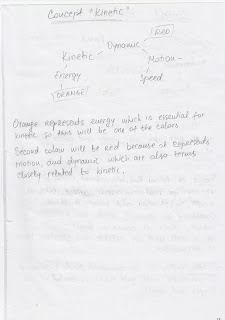 Concept "Kinetic"
RED
Dynamic
Kinetic
Motion
Energy
Speed
ORANGE
Orange represents energy which is essential for
kinetic so this will be one of the colors.
Second colour will be red because it represents
motion, and dynamic which are also terms
closely related to kinetic.